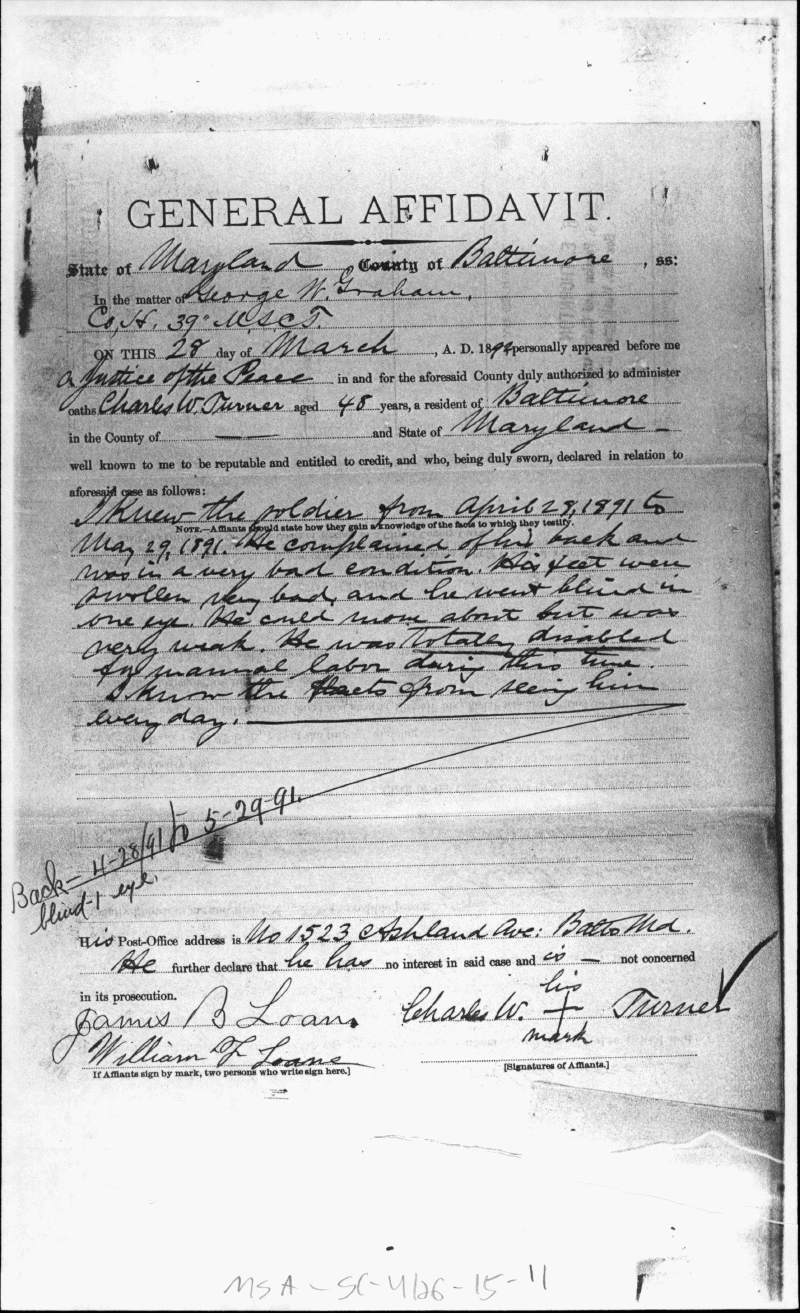 GENERAL AFFIDAVIT.
State of Maryland, County of Baltimore, ss:
In the matter of George W. Graham,
Co, H, 39" U.S.C.T.
ON THIS 28 day of March, A. D. 1892 personally appeared before me
a Justice of the Peace in and for the aforesaid County duly authorized to administer
oaths Charles W. Turner aged 48 years, a resident of Baltimore
in the County of — and State of Maryland —
well known to me to be reputable and entitled to credit, and who, being duly sworn, declared in relation to
aforesaid case as follows:
I knew the soldier from April 28, 1891 to
NOTE.—Affiants should state how they gain a knowledge of the facts to which they testify.
May 29, 1891. He complained of his back and
was in a very bad condition. His feet were
swollen very bad, and he went blind in
one eye. He could move about but was
very weak. He was totally disabled
for manual labor during this time.
I know the facts from seeing him
every day.
Back = 4-28/91 to 5-29-91.
blind-1 eye.
His Post-Office address is No 1523 Ashland Ave: Balto Md.
He further declare that he has no interest in said case and is — not concerned
in its prosecution.
his
James B Loan. Charles W. + Turner
mark
William F Loane
If Affiants sign by mark, two persons who write sign here.] [Signatures of Affiants.]
MSA-SC-4126-15-11